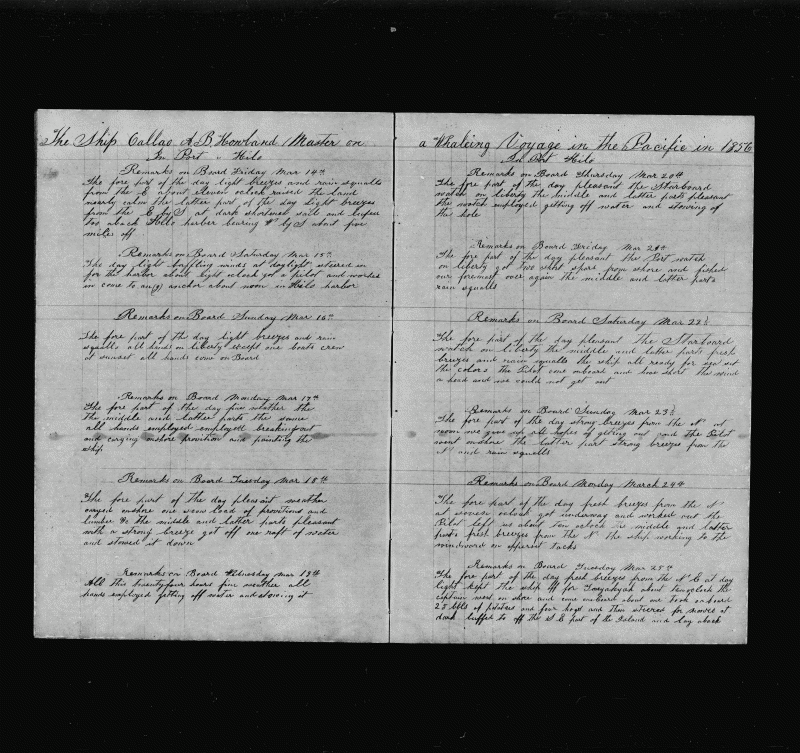 The Ship Callao A B Howland Master on
In Port Hilo
Remarks on Board Friday Mar 14th
The fore part of the day light breezes and rain squalls
from the E about eleven oclock raised the land
nearly calm the latter part of the day light breezes
from the E by S at dark shortened sail and luffed
too aback Hilo harbor bearing W by S about five
miles off
Remarks on Board Saturday Mar 15th
The day light baffling winds at daylight steered in
for the harbor about eight oclock got a pilot and worked
in come to an anchor about noon in Hilo harbor
Remarks on Board Sunday Mar 16th
The fore part of the day light breezes and rain
squalls all hands on liberty except one boats crew
at sunset all hands come on Board
Remarks on Board Monday Mar 17th
The fore part of the day fine weather the
the middle and latter parts the same
all hands employed employed breakingout
and carying onshore provition and painting the
ship
Remarks on Board Tuesday Mar 18th
The fore part of the day pleasant weather
caryed onshore one scow load of provitions and
lumber &c the middle and latter parts pleasant
with a strong breeze got off one raft of water
and stowed it down
Remarks on Board Wednesday Mar 19th
All this twentyfour hours fine weather all
hands employed getting off water and stowing it
a Whaleing Voyage in the Pacific in 1856
In Port Hilo
Remarks on Board Thursday Mar 20th
The fore part of the day pleasant the Starboard
watch on liberty the middle and latter parts pleasant
the watch employed getting off water and stowing of
the hole
Remarks on Board Friday Mar
The fore part of the day pleasant the Port watch
on liberty got two short spars from shore and fished
our foremast over again the middle and latter parts
rain squalls
Remarks on Board Saturday Mar 22
The fore part of the day pleasant the Starboard
watch on liberty the middle and latter parts fresh
breezes and rain squalls the ship all ready for sea set
the colors the Pilot come onboard and hove short the wind
a head and we could not get out
Remarks on Board Sunday Mar 23
The fore part of the day strong breezes from the N at
noon we give up all hopes of getting out and the Pilot
went onshore the latter part strong breezes from the
N and rain squalls
Remarks on Board Monday March 24th
The fore part of the day fresh breezes from the N
at oclock got underway and worked out the
Pilot left us about ten oclock the middle and latter
parts fresh breezes from the N the ship working to the
windward on tacks
Remarks on Board Tuesday Mar 25th
The fore part of the day fresh breezes from the N E at day
light kept the ship off for about oclock the
captain went on shore and come onboard about one took onboard
25 bbls of potatoes and four hogs and then steered for at
dark luffed to off the S E part of the Island and lay aback